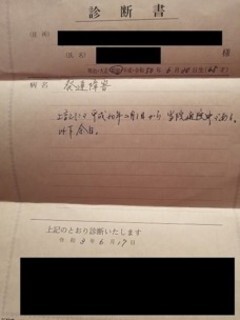 診断書
(住所)
(氏名)
様
病名 発達障害
上記にて平成20年2月1日から当院通院中である。
以下余白。
上記のとおり診断いたします
令和3年6月17日